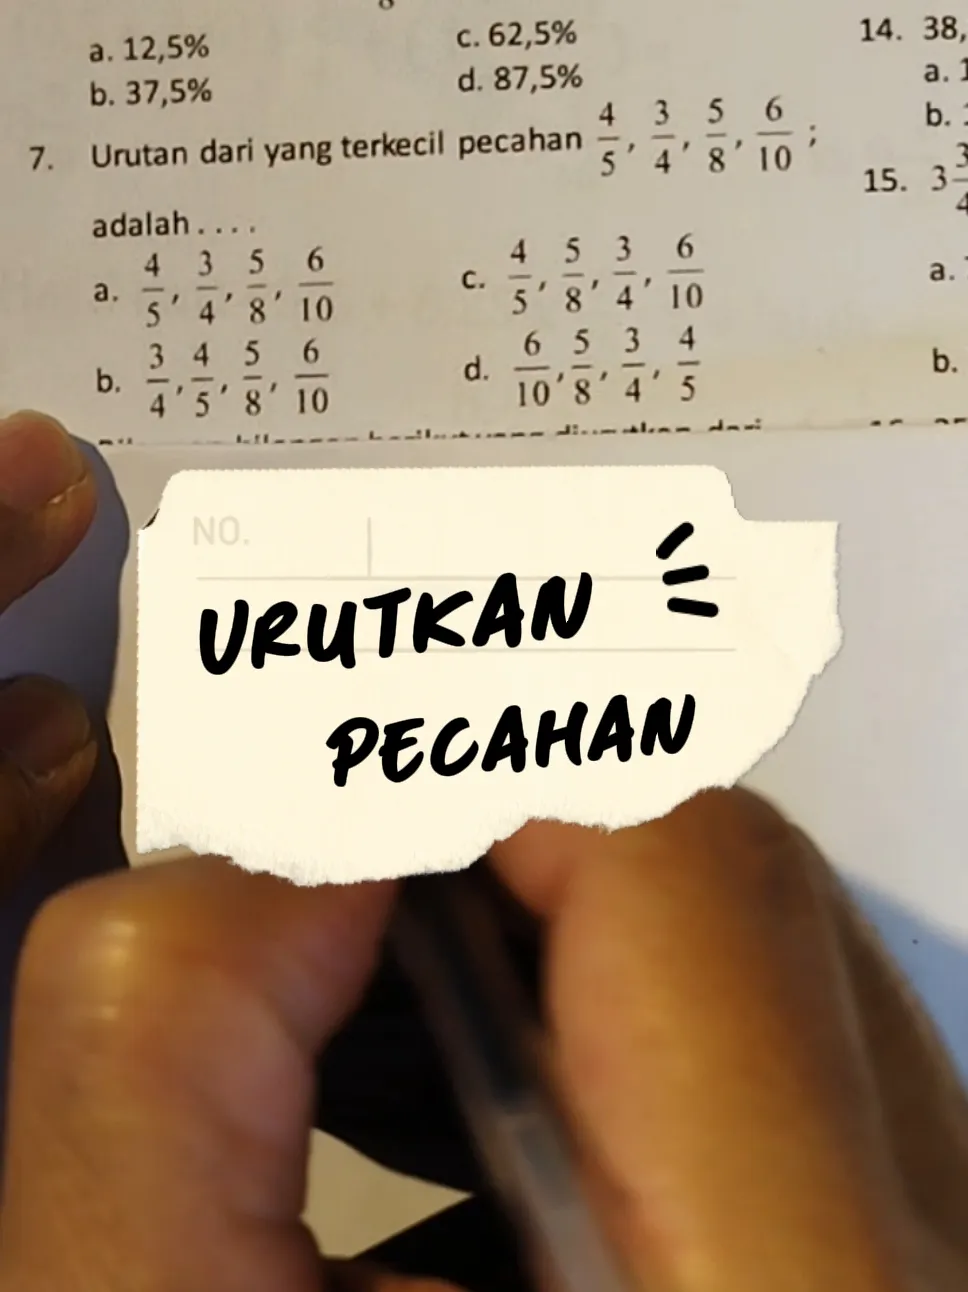 a. 12,5%
c. 62,5%
b. 37,5%
d. 87,5%
7. Urutan dari yang terkecil pecahan 4/5, 3/4, 5/8, 6/10 ;
adalah . . . .
a. 4/5, 3/4, 5/8, 6/10
c. 4/5, 5/8, 3/4, 6/10
b. 3/4, 4/5, 5/8, 6/10
d. 6/10, 5/8, 3/4, 4/5
14. 38,
a. 1
b.
15. 3 3/4
a.
b.
NO.
URUTKAN
PECAHAN